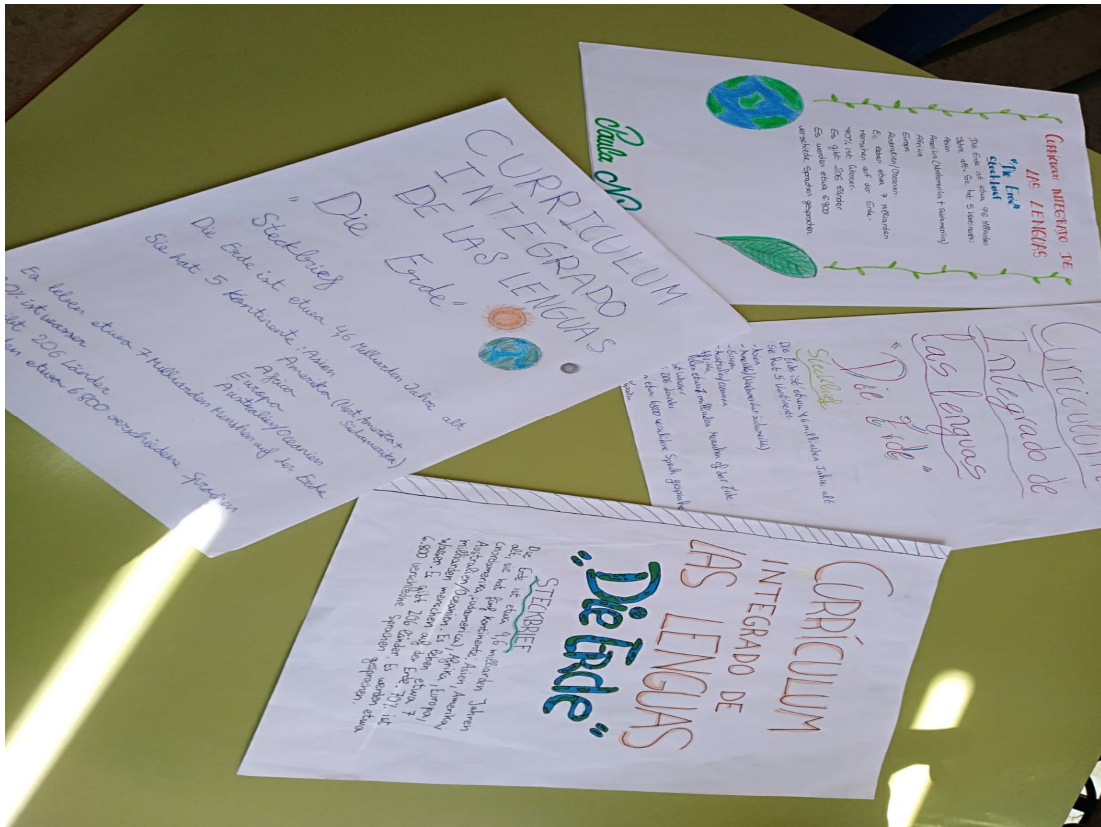 CURRICULUM INTEGRADO DE
LAS LENGUAS
"Die Erde"
Steckbrief
Die Erde ist etwa 4'6 Milliarden
Jahre alt. Sie hat 5 Kontinente:
Asien
Amerika (Nordamerika + Südamerika)
Afrika
Europa
Australien/Ozeanien
Es leben etwa 7 Milliarden
Menschen auf der Erde.
70% ist Wasser
Es gibt 206 Länder
Es werden etwa 6800
verschiede Sprachen gesprochen
Paula N
CURRICULUM
INTEGRADO
DE LAS LENGUAS
"Die Erde"
Steckbrief
Die Erde ist etwa 4'6 Milliarden Jahre alt
Sie hat 5 Kontinente: Asien
Amerika (Nort Amerika +
Südamerika)
Africa
Europa
Australien/Oceanien
Es leben etwa 7 Milliarden Menschen auf der Erde
% ist wasser
206 Länder
etwa 6800 verschiedene Sprachen
Curriculum
Integrado de
las lenguas
"Die Erde"
Steckbrief
Die Erde ist etwa 4'6 milliarden Jahre alt
Sie hat 5 Kontinente:
- Asien
- Europa
ist Wasser
206 länder
CURRÍCULUM
INTEGRADO DE
LAS LENGUAS
"Die Erde"
STECKBRIEF
Die Erde ist etwa 4,6 milliarden Jahren
alt, sie hat fünf Kontinente: Asien, Amerika,
(nordamerika, südamerica), Afrika, Europa,
Australien/Oceanien. Es leben etwa 7
milliarden menschen auf der Erde. 70% ist
Wasser. Es gibt 206 länder. Es werden etwa
6.800 verschieine Sprachen gesprochen.